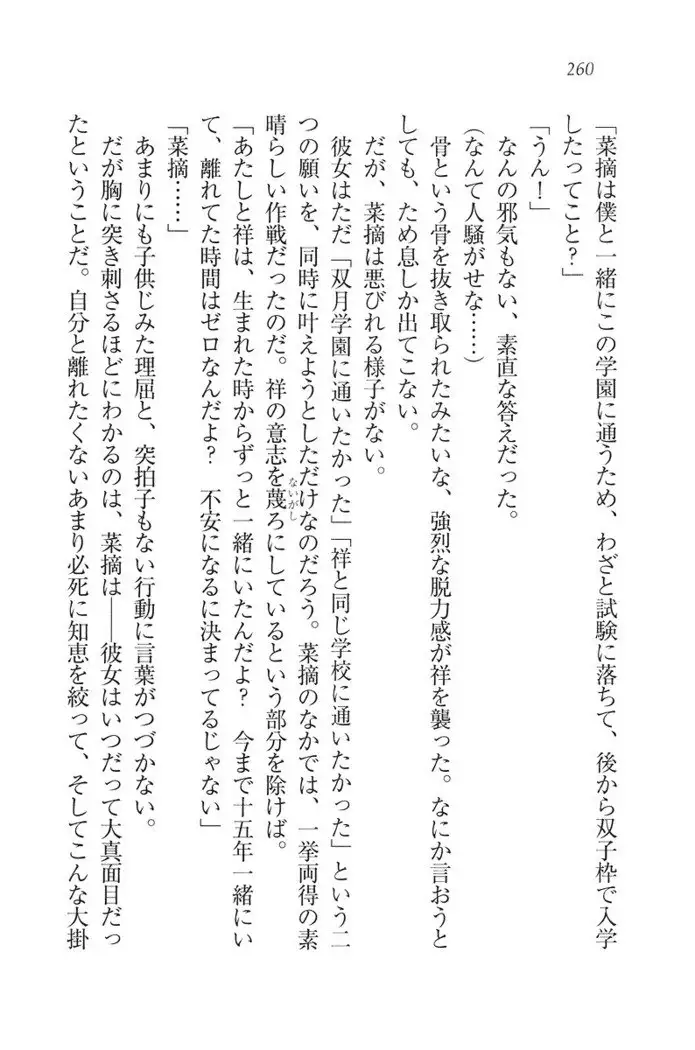 260
「菜摘は僕と一緒にこの学園に通うため、わざと試験に落ちて、後から双子枠で入学
したってこと？」
「うん！」
なんの邪気もない、素直な答えだった。
（なんて人騒がせな……）
骨という骨を抜き取られたみたいな、強烈な脱力感が祥を襲った。なにか言おうと
しても、ため息しか出てこない。
だが、菜摘は悪びれる様子がない。
彼女はただ「双月学園に通いたかった」「祥と同じ学校に通いたかった」という二
つの願いを、同時に叶えようとしただけなのだろう。菜摘のなかでは、一挙両得の素
晴らしい作戦だったのだ。祥の意志を蔑ろにしているという部分を除けば。
ないがし
「あたしと祥は、生まれた時からずっと一緒にいたんだよ？　今まで十五年一緒にい
て、離れてた時間はゼロなんだよ？　不安になるに決まってるじゃない」
「菜摘……」
あまりにも子供じみた理屈と、突拍子もない行動に言葉がつづかない。
だが胸に突き刺さるほどにわかるのは、菜摘は――彼女はいつだって大真面目だっ
たということだ。自分と離れたくないあまり必死に知恵を絞って、そしてこんな大掛